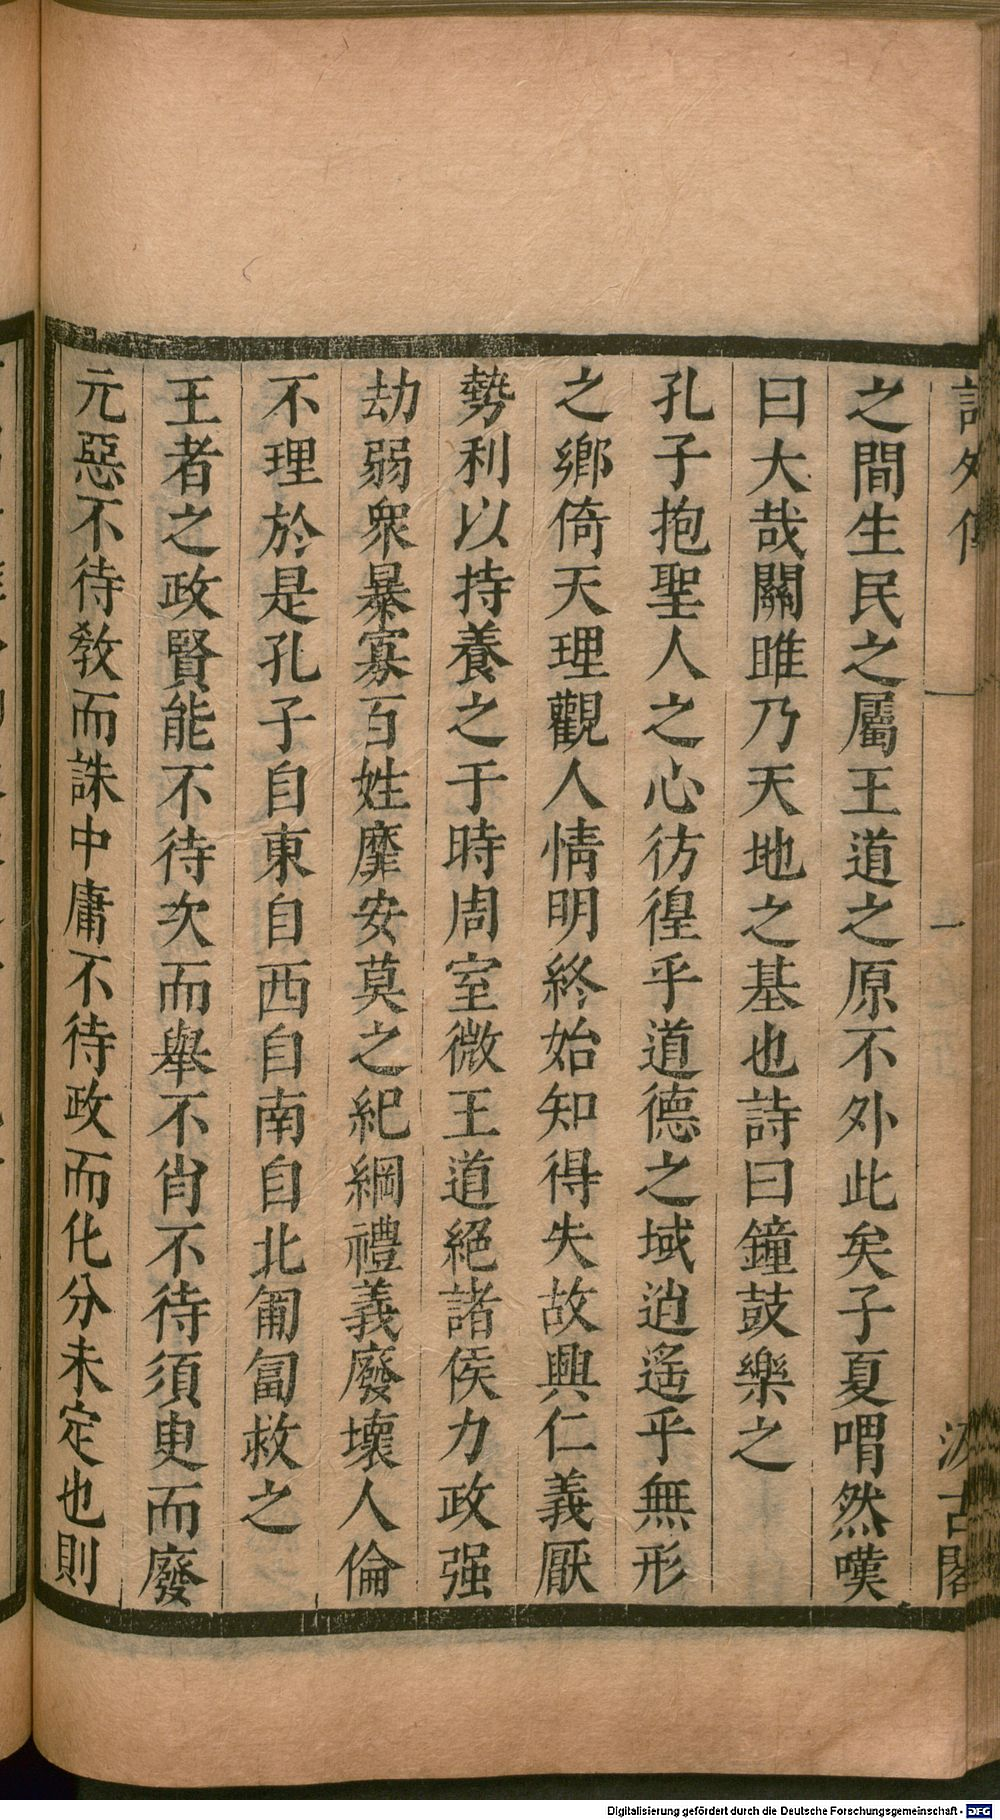 詩外傳
一
一
汲古閣
之間生民之屬王道之原不外此矣子夏喟然嘆
曰大哉關雎乃天地之基也詩曰鐘鼓樂之
孔子抱聖人之心彷徨乎道德之域逍遙乎無形
之鄉倚天理觀人情明終始知得失故興仁義厭
勢利以持養之于時周室微王道絕諸侯力政强
劫弱衆暴寡百姓靡安莫之紀綱禮義廢壞人倫
不理於是孔子自東自西自南自北匍匐救之
王者之政賢能不待次而舉不肖不待須臾而廢
元惡不待敎而誅中庸不待政而化分未定也則
Digitalisierung gefördert durch die Deutsche Forschungsgemeinschaft - DFG